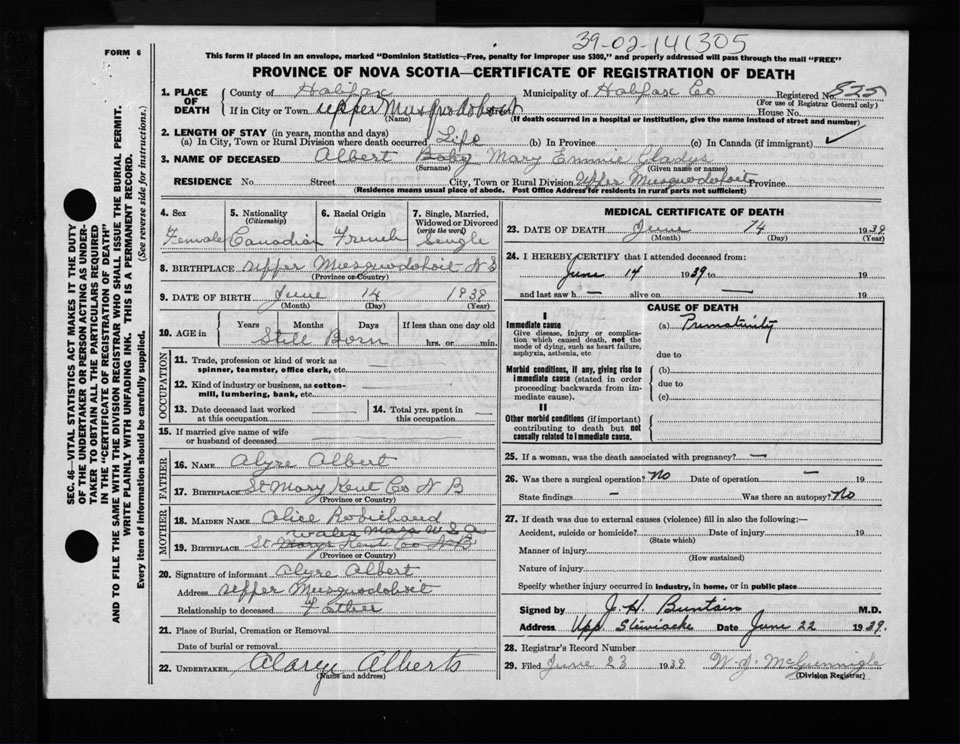 39-02-141305
FORM 6
This form if placed in an envelope, marked "Dominion Statistics—Free, penalty for improper use $300," and properly addressed will pass through the mail "FREE"
PROVINCE OF NOVA SCOTIA—CERTIFICATE OF REGISTRATION OF DEATH
SEC. 46—VITAL STATISTICS ACT MAKES IT THE DUTY
OF THE UNDERTAKER OR PERSON ACTING AS UNDER-
TAKER TO OBTAIN ALL THE PARTICULARS REQUIRED
IN THE "CERTIFICATE OF REGISTRATION OF DEATH"
AND TO FILE THE SAME WITH THE DIVISION REGISTRAR WHO SHALL ISSUE THE BURIAL PERMIT.
WRITE PLAINLY WITH UNFADING INK. THIS IS A PERMANENT RECORD.
Every item of information should be carefully supplied. (See reverse side for instructions.)
1. PLACE OF DEATH County of Halifax Municipality of Halifax Co Registered No. 525
(For use of Registrar General only)
If in City or Town Upper Musquodoboit House No.
(Name) (If death occurred in a hospital or institution, give the name instead of street and number)
2. LENGTH OF STAY (in years, months and days)
(a) In City, Town or Rural Division where death occurred Life (b) In Province (c) In Canada (if immigrant)
3. NAME OF DECEASED Albert Baby Mary Emmie Gladys
(Surname) (Given name or names)
RESIDENCE No. Street City, Town or Rural Division Upper Musquodoboit Province
(Residence means usual place of abode. Post Office Address for residents in rural parts not sufficient)
4. Sex 5. Nationality (Citizenship) 6. Racial Origin 7. Single, Married, Widowed or Divorced (write the word)
Female Canadian French Single
8. BIRTHPLACE Upper Musquodoboit N S
(Province or Country)
9. DATE OF BIRTH June 14 1939
(Month) (Day) (Year)
10. AGE in Years Months Days If less than one day old
Still Born hrs. or min.
OCCUPATION
11. Trade, profession or kind of work as
spinner, teamster, office clerk, etc.
12. Kind of industry or business, as cotton-
mill, lumbering, bank, etc.
13. Date deceased last worked at this occupation 14. Total yrs. spent in this occupation
15. If married give name of wife
or husband of deceased
FATHER
16. NAME Alyre Albert
17. BIRTHPLACE St Mary Kent Co N B
(Province or Country)
MOTHER
18. MAIDEN NAME Alice Robichaud
Mass U S A
19. BIRTHPLACE St Marys Kent Co N B
(Province or Country)
20. Signature of informant Alyre Albert
Address Upper Musquodoboit
Relationship to deceased Father
21. Place of Burial, Cremation or Removal
Date of burial or removal
22. UNDERTAKER Alberts
(Name and address)
MEDICAL CERTIFICATE OF DEATH
23. DATE OF DEATH June 14 1939
(Month) (Day) (Year)
24. I HEREBY CERTIFY that I attended deceased from:
June 14 1939 to 19
and last saw h — alive on — 19
CAUSE OF DEATH
I
Immediate cause (a) Prematurity
Give disease, injury or complica-
tion which caused death, not the
mode of dying, such as heart failure,
asphyxia, asthenia, etc due to
Morbid conditions, if any, giving rise to (b)
immediate cause (stated in order due to
proceeding backwards from im-
mediate cause). (c)
II
Other morbid conditions (if important)
contributing to death but not
causally related to immediate cause.
25. If a woman, was the death associated with pregnancy? —
26. Was there a surgical operation? No Date of operation — 19
State findings — Was there an autopsy? No
27. If death was due to external causes (violence) fill in also the following:—
Accident, suicide or homicide? Date of injury 19
(State which)
Manner of injury
(How sustained)
Nature of injury
Specify whether injury occurred in industry, in home, or in public place
Signed by J. H. Buntain M.D.
Address Upp. Stewiacke Date June 22 1939.
28. Registrar's Record Number
29. Filed June 23 1939 W. J. McGunnigle
(Division Registrar)